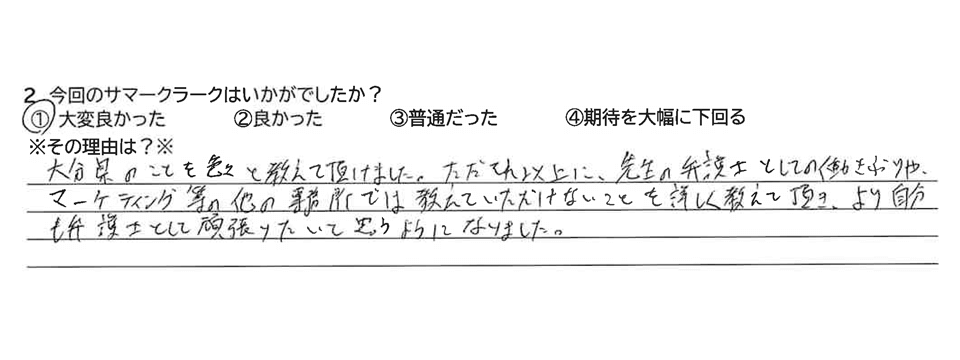 2. 今回のサマークラークはいかがでしたか？
①大変良かった ②良かった ③普通だった ④期待を大幅に下回る
※その理由は？※
大分県のことを色々と教えて頂けました。ただそれ以上に、先生の弁護士としての働きぶりや、
マーケティング等の他の事務所では教えていただけないことを詳しく教えて頂き、より自分
も弁護士として頑張りたいて思うようになりました。